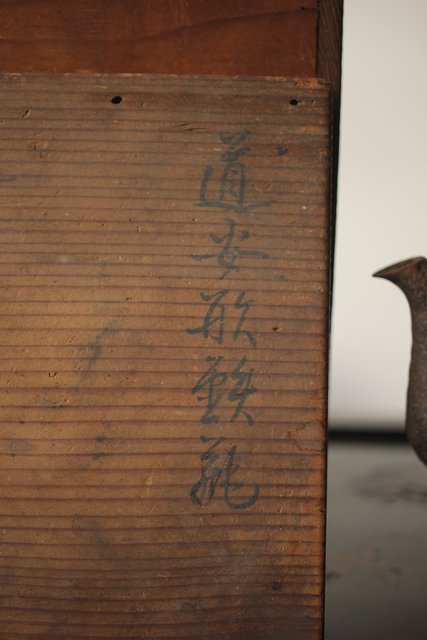 道安形鉄瓶